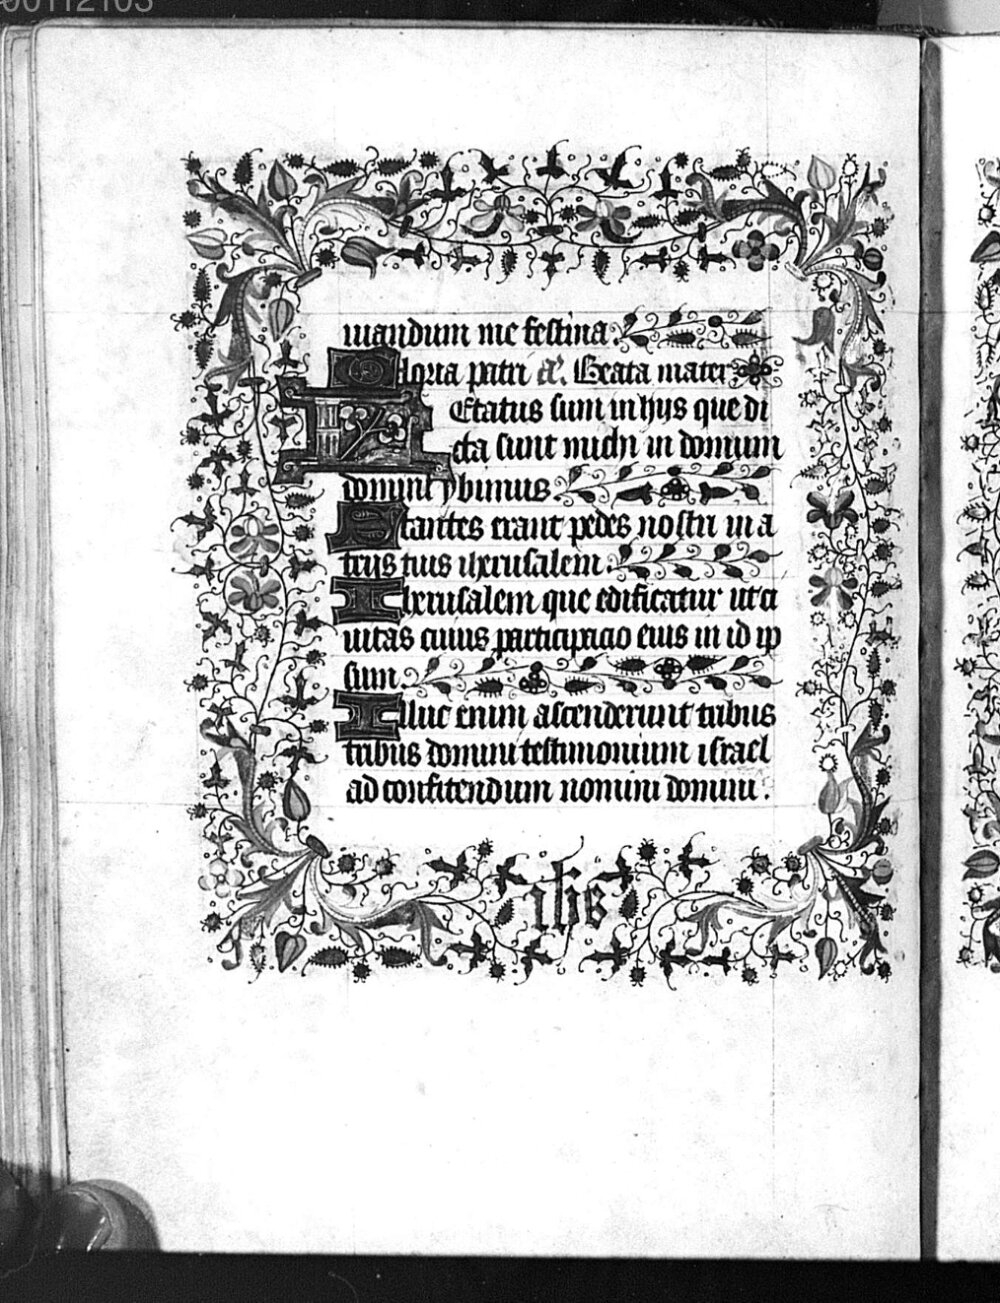 00112103
iuuandum me festina
Gloria patri &c. Beata mater
Letatus sum in hijs que di
cta sunt michi in domum
domini ybimus
Stantes erant pedes nostri in a
trijs tuis iherusalem
Iherusalem que edificatur ut ci
uitas cuius participacio eius in id ip
sum
Illuc enim ascenderunt tribus
tribus domini testimonium israel
ad confitendum nomini domini
ihs